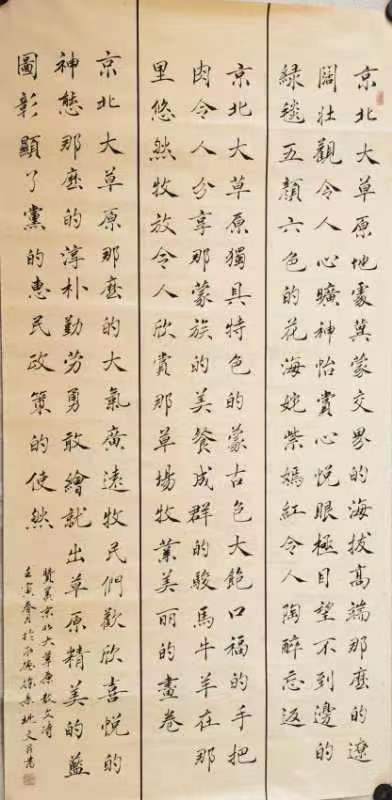 京北大草原地處冀蒙交界的海拔高端那麽的遼
闊壮觀令人心曠神怡賞心悦眼極目望不到邊的
緑毯五顔六色的花海姹紫嫣紅令人陶醉忘返
京北大草原獨具特色的蒙古色大飽口福的手把
肉令人分享那蒙族的美餐成群的駿馬牛羊在那
里悠然牧放令人欣賞那草場牧業美丽的畫卷
京北大草原那麽的大氣廣遠牧民們歡欣喜悦的
神態那麽的淳朴勤劳勇敢繪就出草原精美的藍
圖彰顯了黨的惠民政策的使然
贊美京北大草原散文诗
壬寅春月於承德